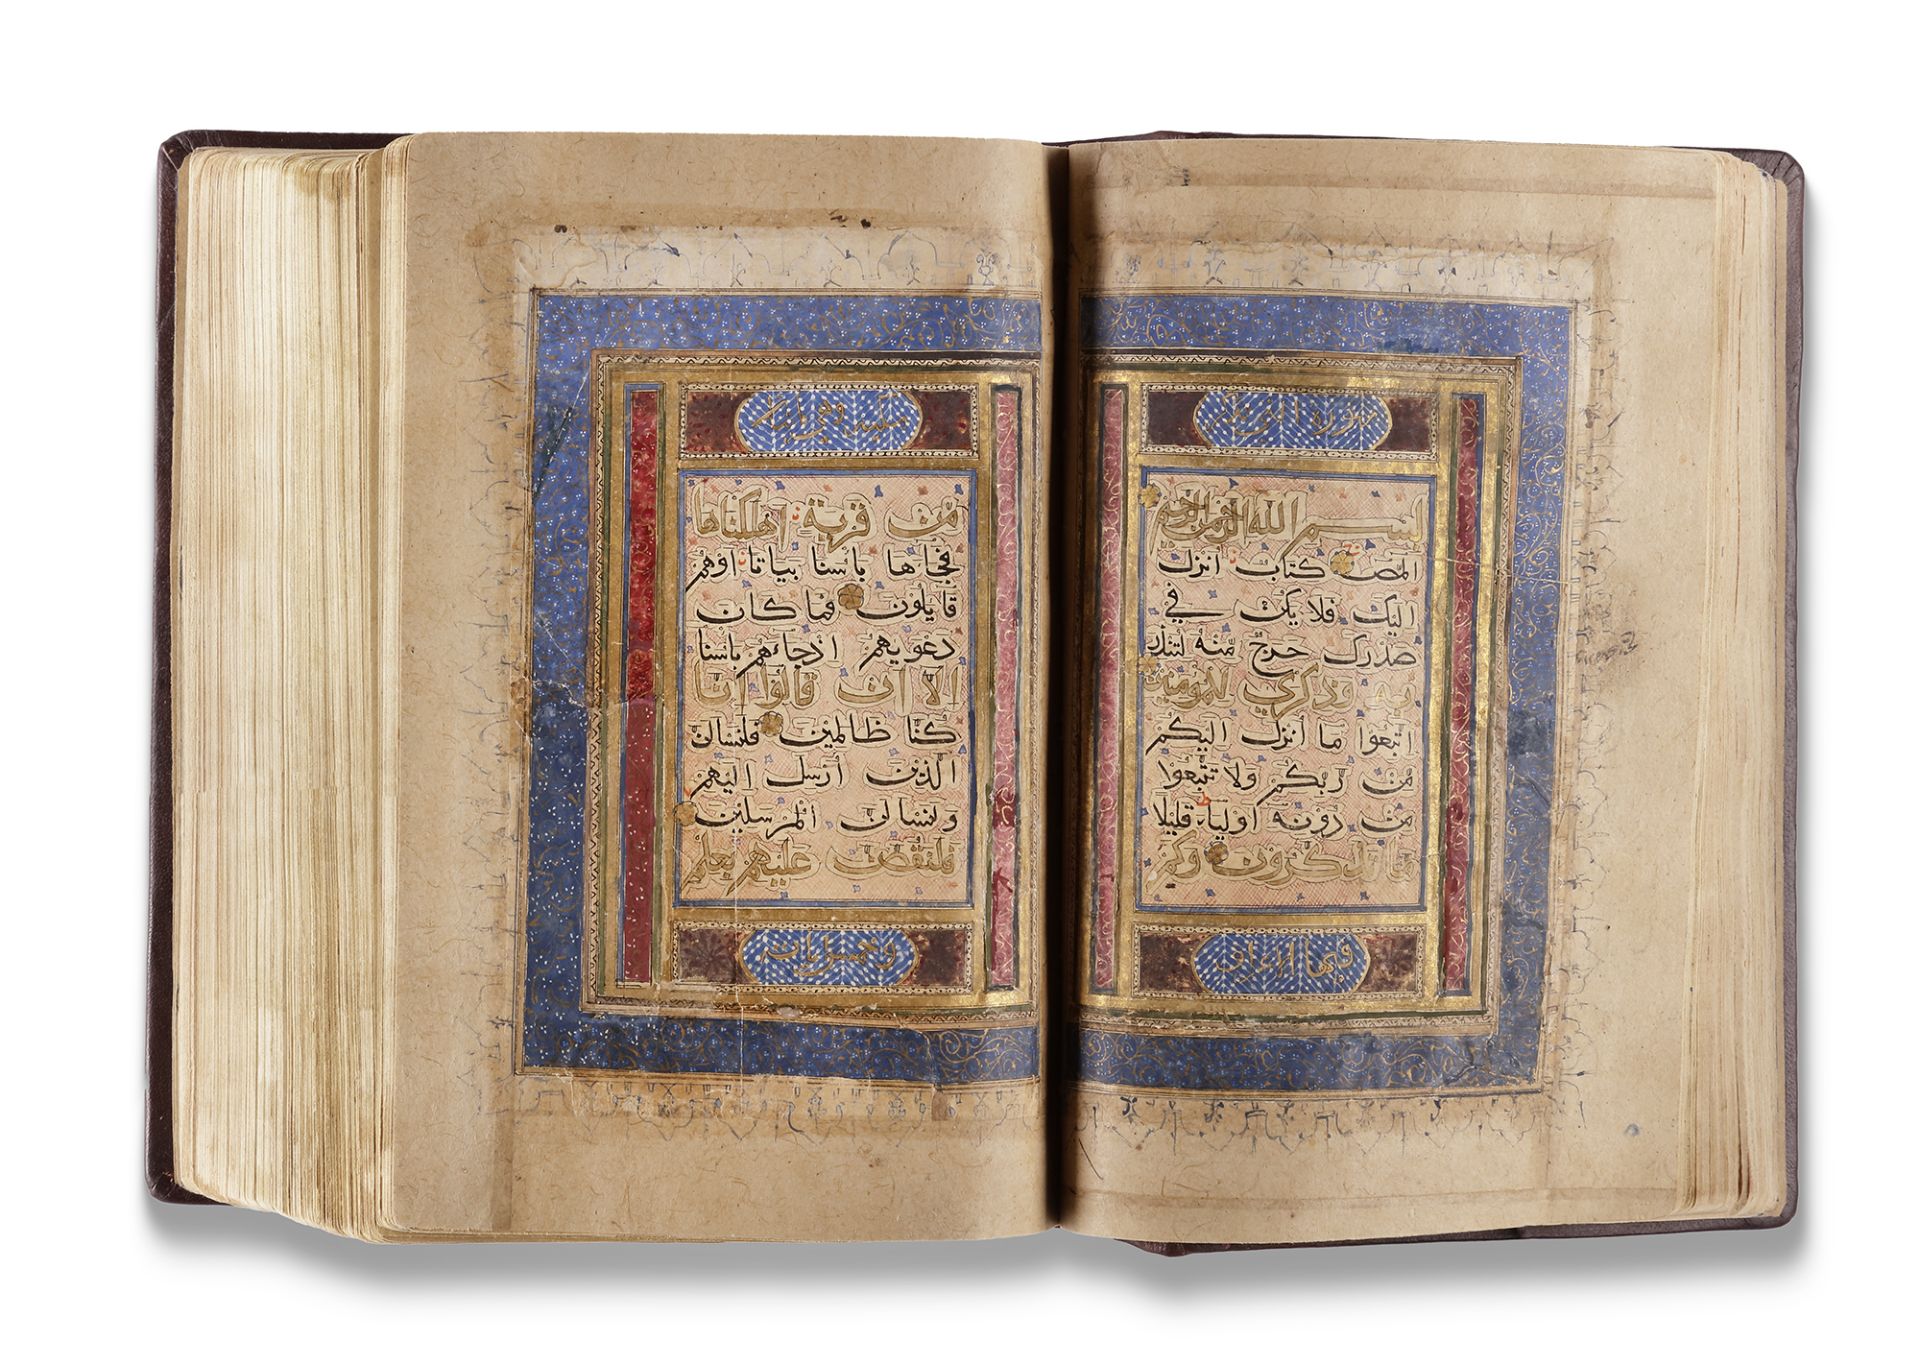 سورة التي يذكر
بسم الله الرحمن الرحيم
المص كتاب انزل
اليك فلا يكن في
صدرك حرج منه لتنذر
به وذكري للمومنين
اتبعوا ما انزل اليكم
من ربكم ولا تتبعوا
من دونه اوليآ قليلا
ما تذكرون وكم
فيها الاعراف
مكية وهي مايتان
من قرية اهلكناها
فجاها باسنا بياتا اوهم
قايلون فما كان
دعويهم اذ جاءهم باسنا
الا ان قالوا انا
كنا ظالمين فلنسالن
الذين ارسل اليهم
ولنسالن المرسلين
فلنقصن عليهم بعلم
وخمس ايات